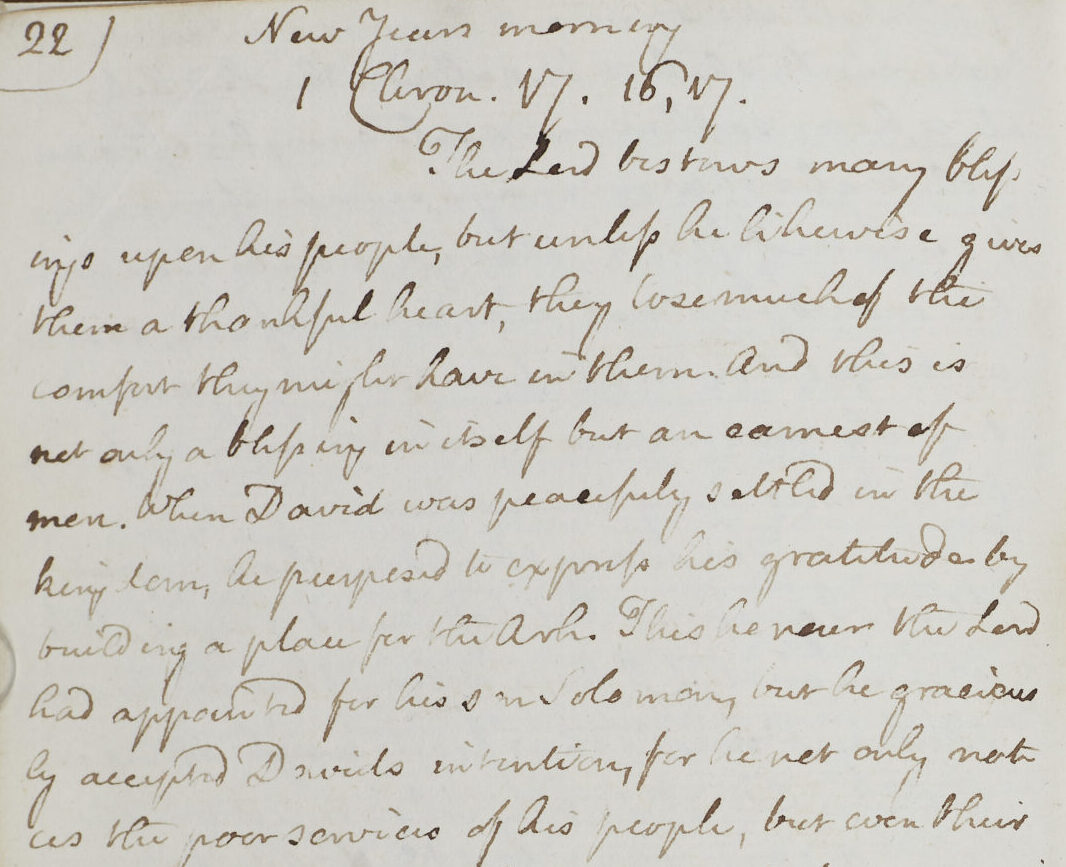 22
New Years morning
1 Chron. 17. 16, 17.
The Lord bestows many bless
ings upon his people, but unless he likewise gives
them a thankful heart, they lose much of the
comfort they might have in them. And this is
not only a blessing in itself but an earnest of
more. When David was peacefully settled in the
kingdom, he purposed to express his gratitude by
building a place for the Ark. This honour the Lord
had appointed for his son Solomon, but he gracious
ly accepted Davids intention, for he not only noti
ces the poor services of his people, but even their